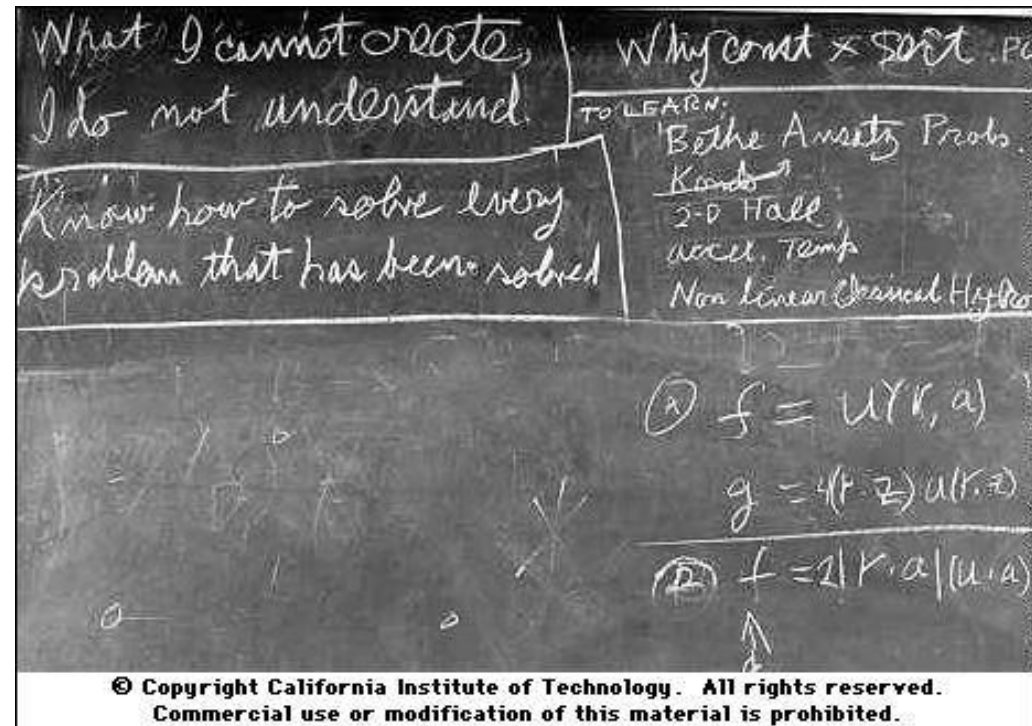 What I cannot create,
I do not understand.
Know how to solve every
problem that has been solved
Why const × sort . Po
TO LEARN:
Bethe Ansatz Probs.
Kondo
2-D Hall
accel. Temp
Non Linear Classical Hydro
f = U(r, a)
g = 4(r·z) u(r.z)
f = 2|r·a|(u·a)
© Copyright California Institute of Technology. All rights reserved.
Commercial use or modification of this material is prohibited.